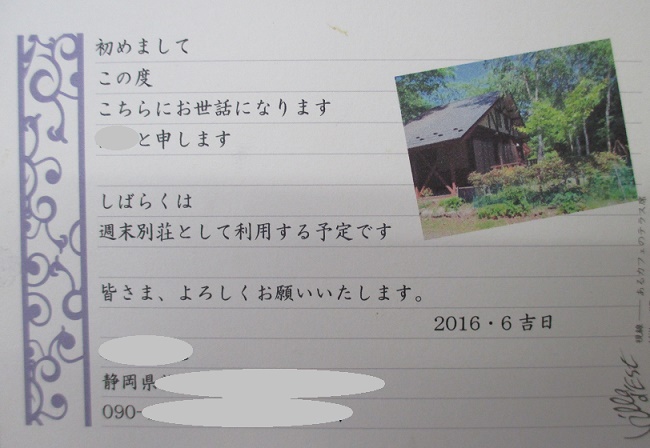 初めまして
この度
こちらにお世話になります
と申します
しばらくは
週末別荘として利用する予定です
皆さま、よろしくお願いいたします。
2016・6吉日
静岡県
090-
あるカフェのテラス席